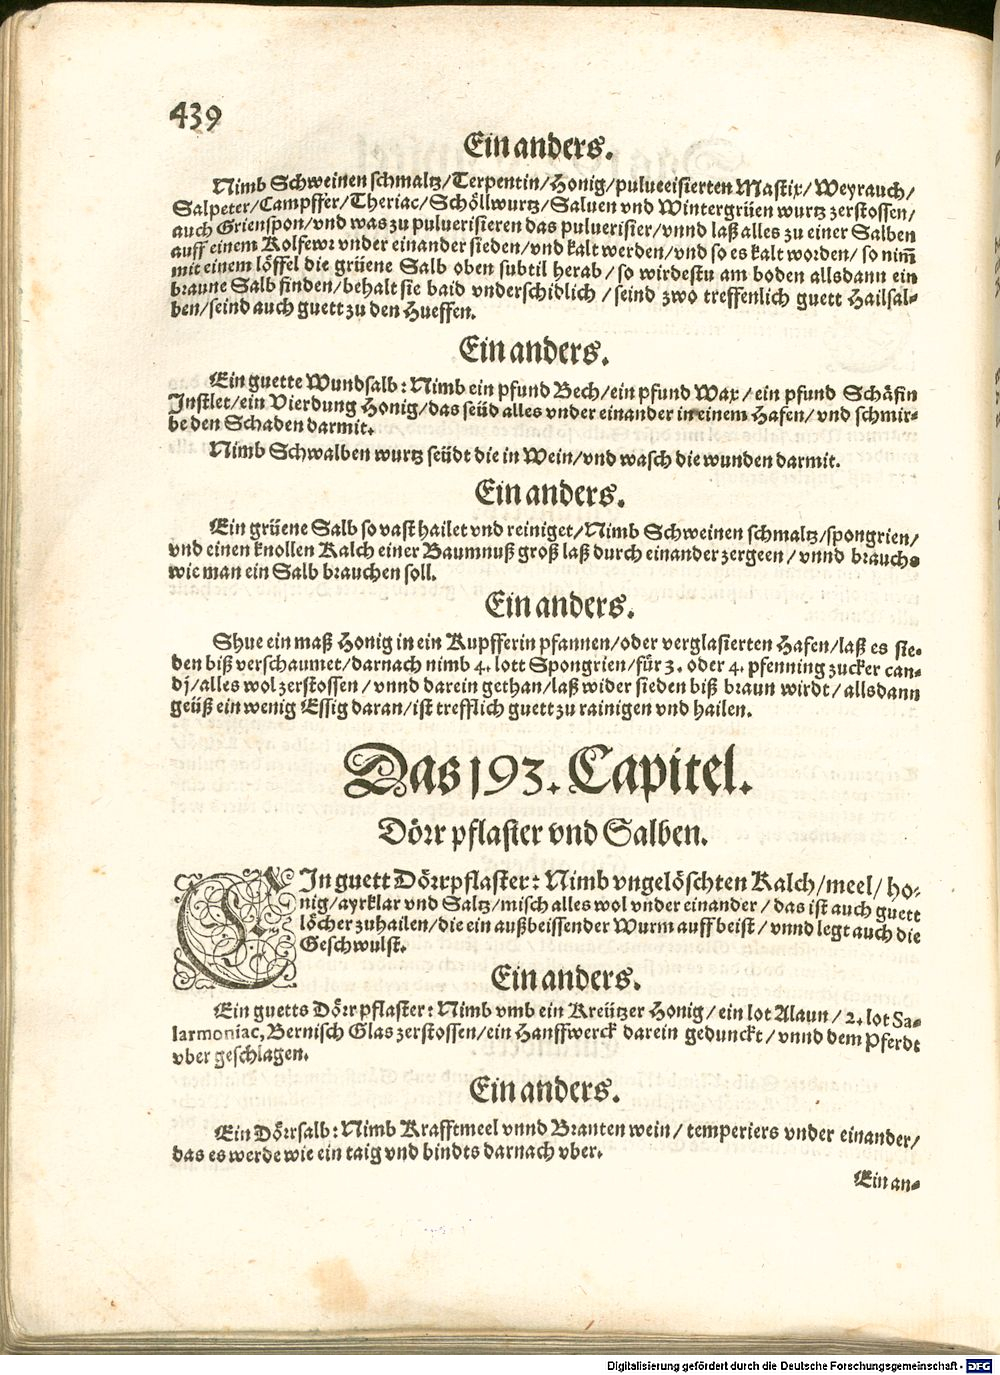 439
Ein anders.
Nimb Schweinen schmaltz/Terpentin/Honig/pulueeisierten Mastix/Weyrauch/
Salpeter/Campffer/Theriac/Schöllwurtz/Saluen vnd Wintergrüen wurtz zerstossen/
auch Grienspon/vnd was zu puluerisieren das puluerisier/vnnd laß alles zu einer Salben
auff einem Kolfewr vnder einander sieden/vnd kalt werden/vnd so es kalt worden/so nim̃
mit einem löffel die grüene Salb oben subtil herab/so wirdestu am boden allsdann ein
braune Salb finden/behalt sie baid vnderschidlich/seind zwo treffenlich guett Hailsal-
ben/seind auch guett zu den Hueffen.
Ein anders.
Ein guette Wundsalb: Nimb ein pfund Bech/ein pfund Wax/ein pfund Schäfin
Instlet/ein Vierdung Honig/das seüd alles vnder einander in einem Hafen/vnd schmir-
be den Schaden darmit.
Nimb Schwalben wurtz seüdt die in Wein/vnd wasch die wunden darmit.
Ein anders.
Ein grüene Salb so vast hailet vnd reiniget/Nimb Schweinen schmaltz/spongrien/
vnd einen knollen Kalch einer Baumnuß groß laß durch einander zergeen/vnnd brauchs
wie man ein Salb brauchen soll.
Ein anders.
Thue ein maß Honig in ein Kupfferin pfannen/oder verglasierten Hafen/laß es sie-
den biß verschaumet/darnach nimb 4. lott Spongrien/für 3. oder 4. pfenning zucker can-
dj/alles wol zerstossen/vnnd darein gethan/laß wider sieden biß braun wirdt/allsdann
geüß ein wenig Essig daran/ist trefflich guett zu rainigen vnd hailen.
Das 193. Capitel.
Dörr pflaster vnd Salben.
EIn guett Dörrpflaster: Nimb vngelöschten Kalch/meel/ho-
nig/ayrklar vnd Saltz/misch alles wol vnder einander/das ist auch guett
löcher zuhailen/die ein außbeissender Wurm auff beist/vnnd legt auch die
Geschwulst.
Ein anders.
Ein guetts Dörr pflaster: Nimb vmb ein Kreützer Honig/ein lot Alaun/2. lot Sa-
larmoniac, Bernisch Glas zerstossen/ein Hanffwerck darein gedunckt/vnnd dem Pferdt
vber geschlagen.
Ein anders.
Ein Dörrsalb: Nimb Krafftmeel vnnd Branten wein/temperiers vnder einander/
das es werde wie ein taig vnd bindts darnach vber.
Ein an-
Digitalisierung gefördert durch die Deutsche Forschungsgemeinschaft - DFG